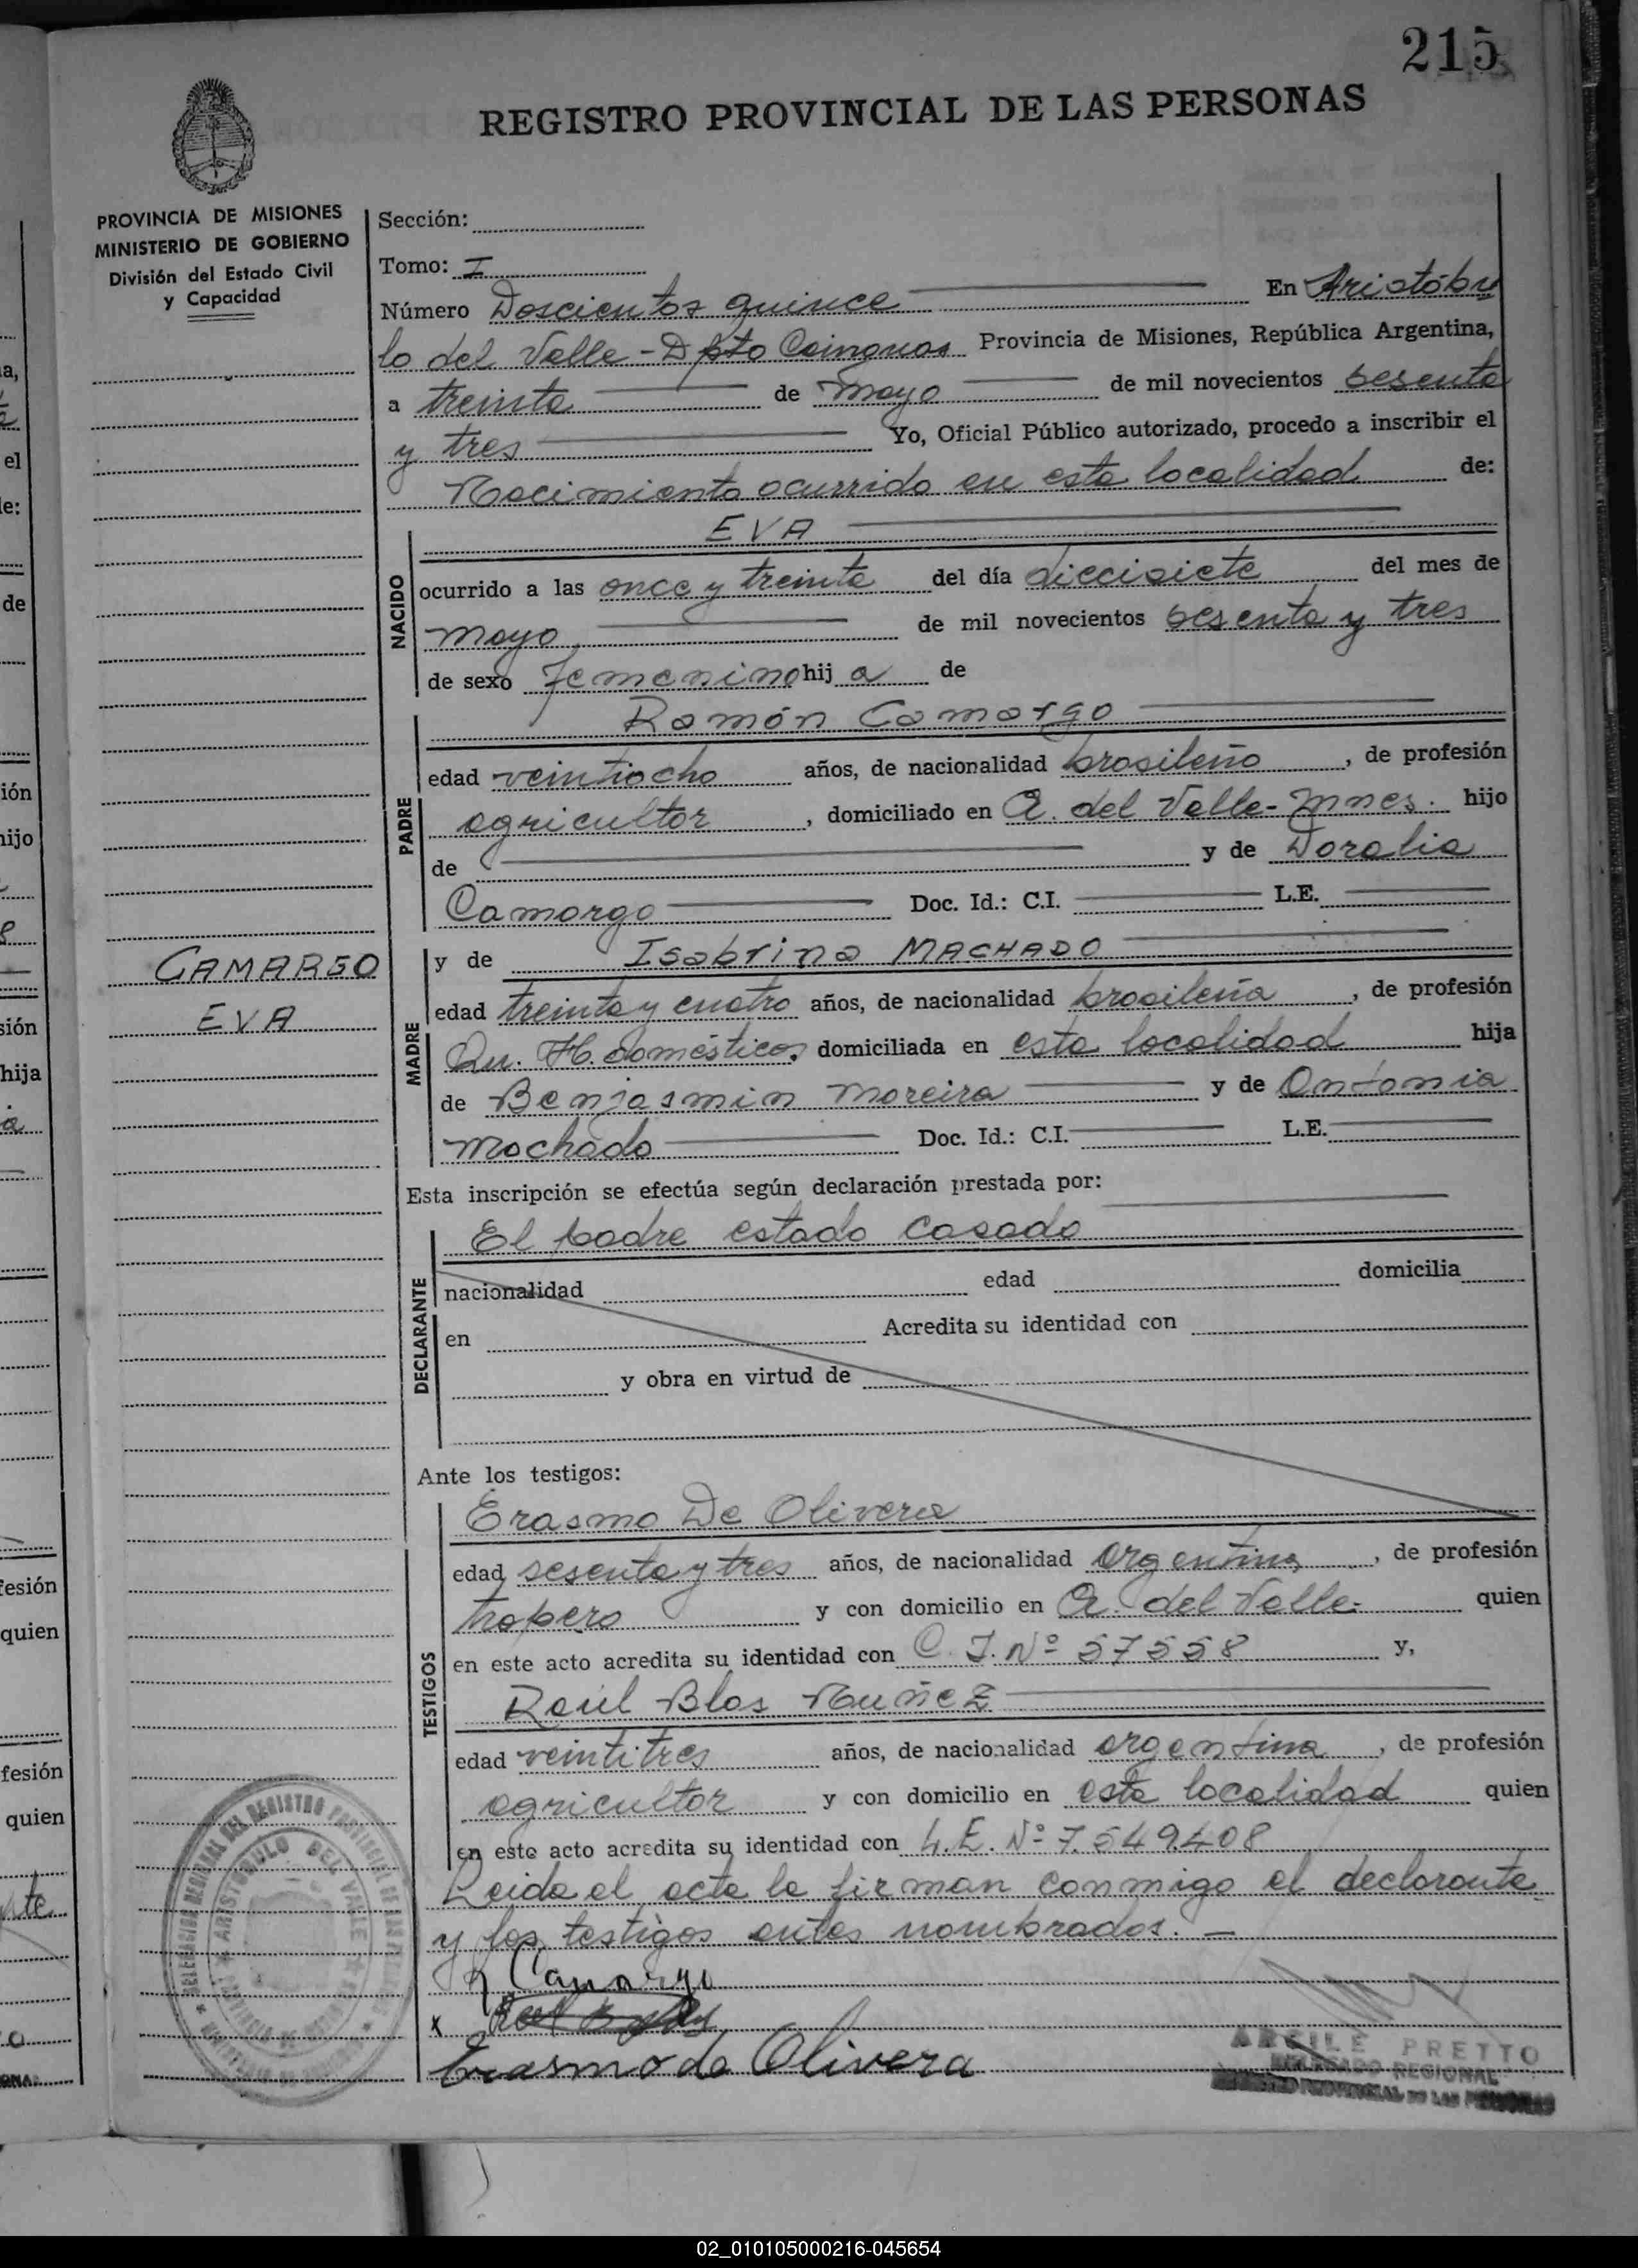 215
REGISTRO PROVINCIAL DE LAS PERSONAS
PROVINCIA DE MISIONES
MINISTERIO DE GOBIERNO
División del Estado Civil
y Capacidad
Sección:
Tomo: I
Número Doscientos quince En Aristóbu
lo del Valle - Dpto Cainguas Provincia de Misiones, República Argentina,
a treinta de mayo de mil novecientos sesenta
y tres Yo, Oficial Público autorizado, procedo a inscribir el
Nacimiento ocurrido en esta localidad de:
EVA
NACIDO
ocurrido a las once y treinta del día diecisiete del mes de
mayo de mil novecientos sesenta y tres
de sexo femenino hij a de
Ramón Camargo
PADRE
edad veintiocho años, de nacionalidad brasileño, de profesión
agricultor, domiciliado en A. del Valle - Mnes. hijo
de y de Doralia
Camargo Doc. Id.: C.I. L.E.
CAMARGO
EVA
y de Isabrina MACHADO
MADRE
edad treinta y cuatro años, de nacionalidad brasileña, de profesión
Qu. H. domésticos, domiciliada en esta localidad hija
de Benjasmin Moreira y de Antonia
Machado Doc. Id.: C.I. L.E.
Esta inscripción se efectúa según declaración prestada por:
El padre estado casado
DECLARANTE
nacionalidad edad domicilia
en Acredita su identidad con
y obra en virtud de
Ante los testigos:
Erasmo De Olivera
TESTIGOS
edad sesenta y tres años, de nacionalidad argentina, de profesión
tropero y con domicilio en A. del Valle. quien
en este acto acredita su identidad con C. I. Nº 57558 y,
Raúl Blas Nuñez
edad veintitres años, de nacionalidad argentina, de profesión
agricultor y con domicilio en esta localidad quien
en este acto acredita su identidad con L.E. Nº 7.549.408
Leida el acta la firman conmigo el declarante
y los testigos antes nombrados. -
Camargo
x
Erasmo de Olivera
ARISTOBULO DEL VALLE
ARCILE PRETTO
DELEGADO REGIONAL
REGISTRO PROVINCIAL DE LAS PERSONAS
02_010105000216-045654